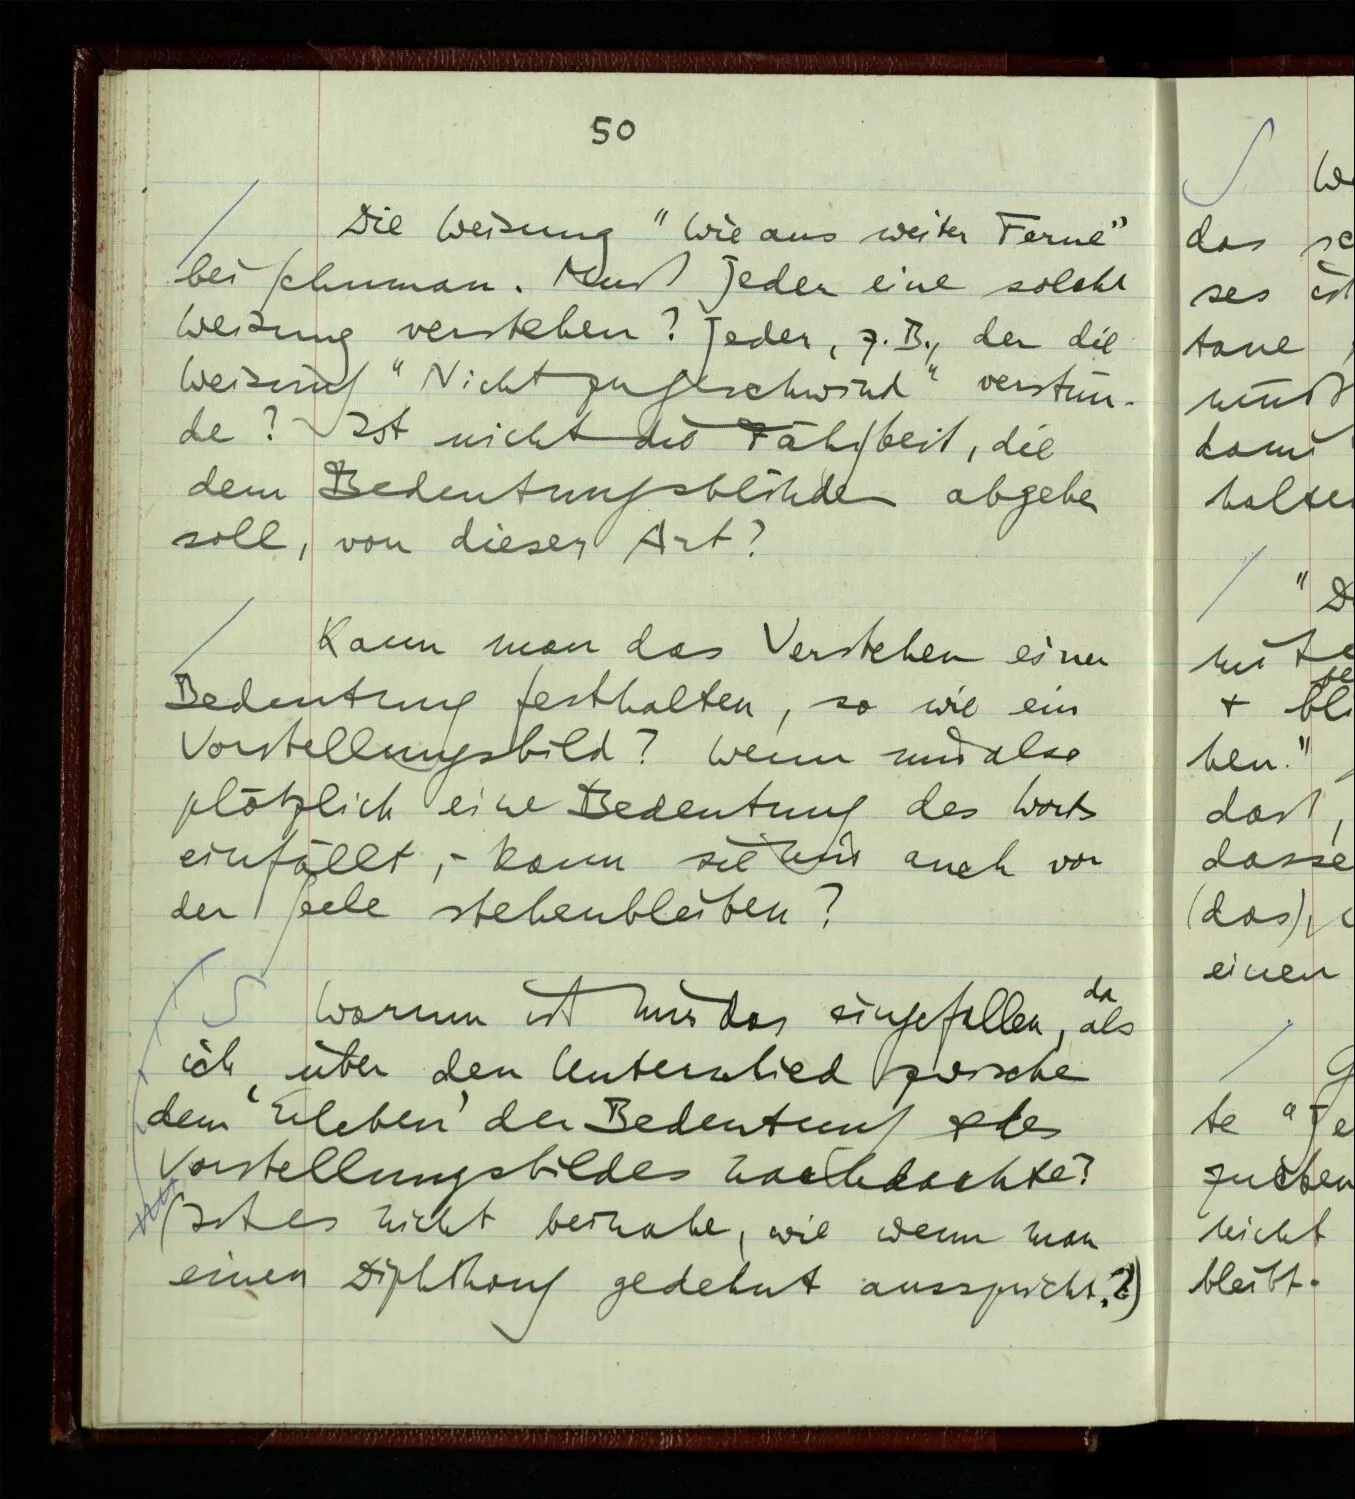 50
Die Weisung "Wie aus weiter Ferne"
bei Schuman. Muß Jeder eine solche
Weisung verstehen? Jeder, z.B., der die
Weisung "Nicht zu geschwind" verstün-
de? Ist nicht die Fähigkeit, die
dem Bedeutungsblinden abgehen
soll, von dieser Art?
Kann man das Verstehen einer
Bedeutung festhalten, so wie ein
Vorstellungsbild? Wenn mir also
plötzlich eine Bedeutung des Worts
einfällt, – kann sie mir auch vor
der Seele stehenbleiben?
Warum ist mir das eingefallen, da als
ich über den Unterschied zwischen
dem 'Erleben' der Bedeutung & des
Vorstellungsbildes nachdachte?
(Ist es nicht beinahe, wie wenn man
einen Diphthong gedehnt ausspricht.?)
das
ses ist
tane
muß
halten
"D
+
hen."
daß,
dasse
(das),
einen
te "Je
nicht
bleibt.